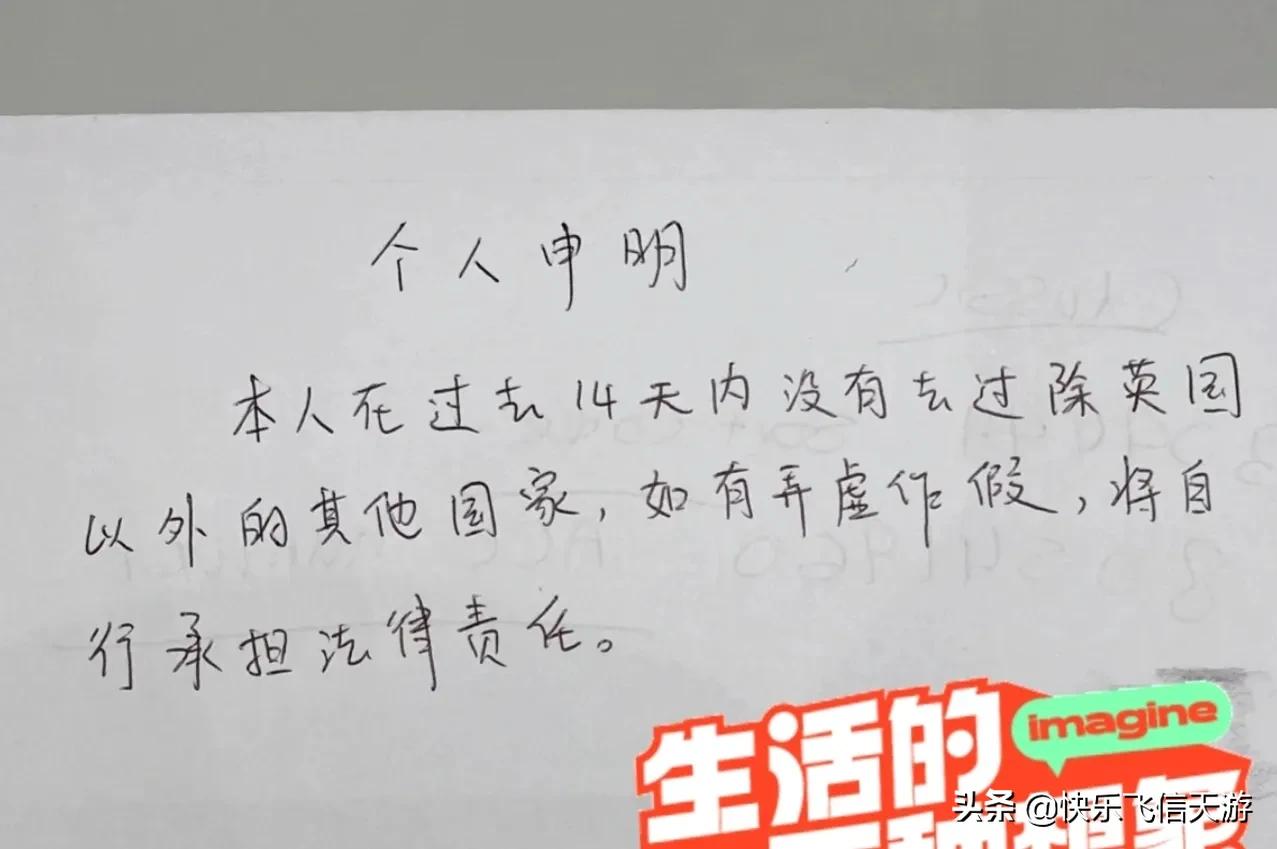 个人申明
本人在过去14天内没有去过除英国
以外的其他国家,如有弄虚作假,将自
行承担法律责任。
生活的
imagine
头条 @快乐飞信天游